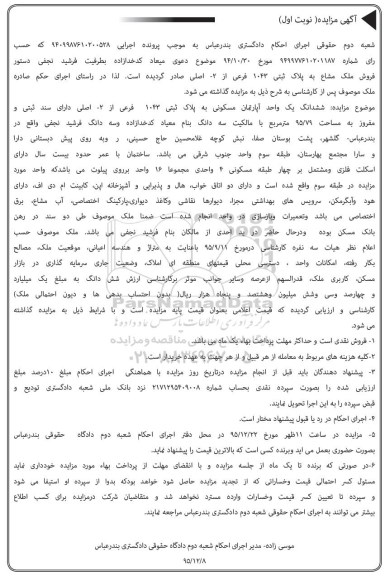 آگهی مزایده( نوبت اول)
شعبه دوم حقوقی اجرای احکام دادگستری بندرعباس به موجب پرونده اجرایی ۹۴۰۹۹۸۷۶۱۰۲۰۰۵۲۸ که حسب
رای شماره ۹۴۰۹۹۷۷۶۱۰۲۰۱۱۸۷ مورخ ۹۴/۱۰/۳۰ موضوع دعوی میعاد کدخدازاده بطرفیت فرشید نجفی دستور
فروش ملک مشاع به پلاک ثبتی ۱۰۴۳ فرعی از ۲- اصلی صادر گردیده است. لذا در راستای اجرای حکم صادره
ملک موصوف پس از کارشناسی به شرح ذیل به مزایده گذاشته می شود.
موضوع مزایده: ششدانگ یک واحد آپارتمان مسکونی به پلاک ثبتی ۱۰۴۳ فرعی از ۲- اصلی دارای سند ثبتی و
مفروز به مساحت ۹۵/۷۹ مترمربع با مالکیت سه دانگ بنام معیاد کدخدازاده وسه دانگ فرشید نجفی واقع در
بندرعباس- گلشهر، پشت بوستان صفا، نبش کوچه غلامحسین حاج حسینی، ر وبه روی پیش دبستانی دارا
و سارا مجتمع بهارستان، طبقه سوم واحد جنوب شرقی می باشد. ساختمان با عمر حدود بیست سال دارای
اسکلت فلزی ومشتمل بر چهار طبقه مسکونی ۴ واحدی مجموعا ۱۶ واحد برروی پیلوت می باشدکه واحد مورد
مزایده در طبقه سوم واقع شده است و دارای دو اتاق خواب، هال و پذیرایی و آشپزخانه اپن، کابینت ام دی اف، دارای
هود وآبگرمکن، سرویس های بهداشتی مجزا، دیوارها نقاشی وکاغذ دیواری،پارکینگ اختصاصی، آب مشاع، برق
اختصاصی می باشد وتعمیرات وبازسازی در واحد انجام شده است ضمنا ملک موصوف طی دو سند در رهن
بانک مسکن بوده ودرحال حاضر در ید احدی از مالکین بنام فرشید نجفی می باشد. ملک موصوف حسب
اعلام نظر هیات سه نفره کارشناسی درمورخ ۹۵/۹/۱۱ باعنایت به متراژ و هندسه اعیانی، موقعیت ملک، مصالح
بکار رفته، امکانات واحد ، دسترسی محلی قیمتهای منطقه ای املاک، وضعیت جاری سرمایه گذاری در بازار
مسکن، کاربری ملک، قدرالسهم ازعرصه وسایر جوانب موثر برکارشناسی ارزش شش دانگ به مبلغ یک میلیارد
و چهارصد وسی وشش میلیون وهشتصد و پنجاه هزار ریال( بدون احتساب بدهی ها و دیون احتمالی ملک)
کارشناسی و ارزیابی گردیده که قیمت اعلامی بعنوان قیمت پایه مزایده است و با شرایط ذیل به مزایده گذاشته
می شود.
۱- فروش نقدی است و حداکثر مهلت پرداخت بهاء یک ماه می باشد.
۲-کلیه هزینه های مربوط به معامله از هر قبیل و از هر جهت به عهده خریدار است.
۳- پیشنهاد دهندگان باید قبل از انجام مزایده درتاریخ روز مزایده با هماهنگی اجرای احکام مبلغ ۱۰درصد مبلغ
ارزیابی شده را بصورت سپرده نقدی بحساب شماره ۲۱۷۱۲۹۵۴۰۹۰۰۸ نزد بانک ملی شعبه دادگستری تودیع و
قبض سپرده را به این اجرا تحویل نمایند.
۴- اجرای احکام در رد یا قبول پیشنهاد مختار است.
۵- مزایده در ساعت ۱۱ظهر مورخ ۹۵/۱۲/۲۲ در محل دفتر اجرای احکام شعبه دوم دادگاه حقوقی بندرعباس
بصورت حضوری بعمل می آید وبرنده کسی است که بالاترین قیمت را پیشنهاد نماید.
۶-در صورتی که برنده تا یک ماه از جلسه مزایده و با انقضای مهلت از پرداخت بهاء مورد مزایده خودداری نماید
مسئول کسر احتمالی قیمت وخساراتی که از تجدید مزایده حاصل شود خواهد بودکه بدوا از سپرده او استیفا می شود
و سپرده تا تعیین کسر قیمت وخسارات وارده مسترد نخواهد شد و متقاضیان شرکت درمزایده برای کسب اطلاع
بیشتر می توانند به اجرای احکام حقوقی شعبه دوم دادگستری بندرعباس مراجعه نمایند.
موسی زاده- مدیر اجرای احکام شعبه دوم دادگاه حقوقی دادگستری بندرعباس
۹۵/۱۲/۸